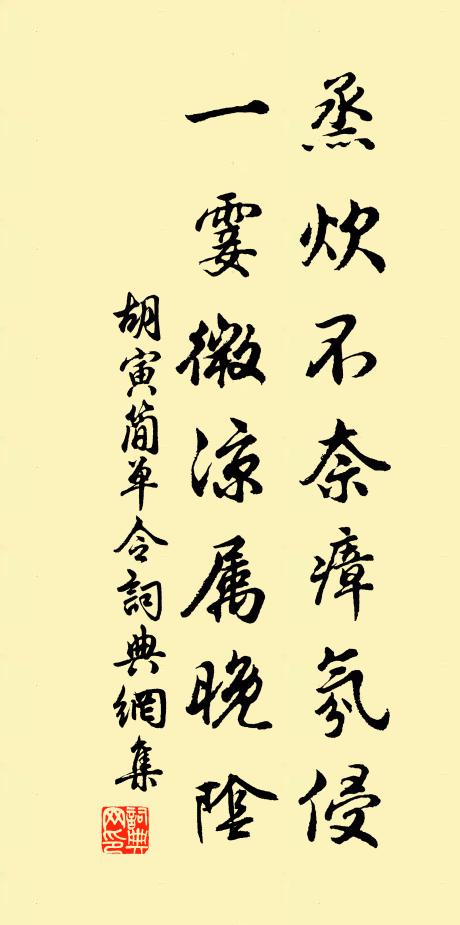 烝炊不奈瘴氛侵
一霎微涼属晚陰
胡寅簡单令詞典網集
詞典网印